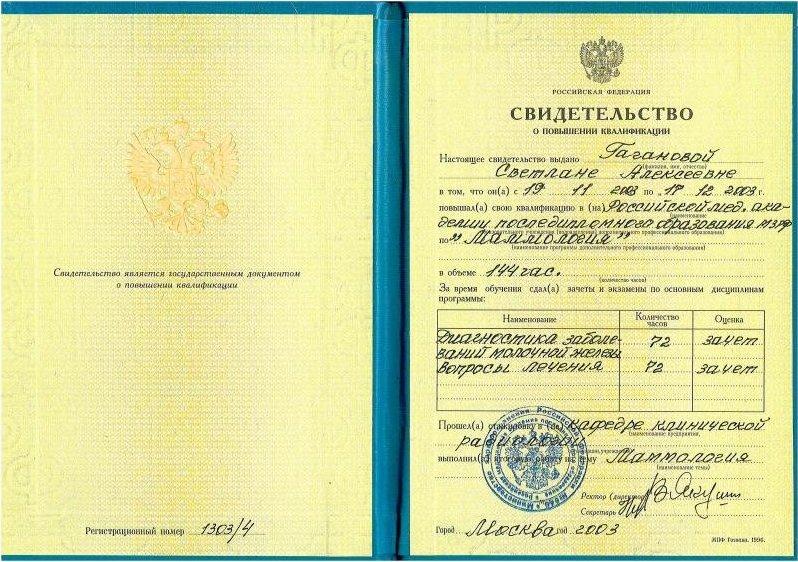 Свидетельство является государственным документом
о повышении квалификации
Регистрационный номер 1303/4
РОССИЙСКАЯ ФЕДЕРАЦИЯ
СВИДЕТЕЛЬСТВО
О ПОВЫШЕНИИ КВАЛИФИКАЦИИ
Настоящее свидетельство выдано Гагановой
(фамилия, имя, отчество)
Светлане Алексеевне
в том, что он(а) с 19 11 2003 по 18 12 2003 г.
повышал(а) свою квалификацию в (на) Российской мед. ака-
(наименование
демии последипломного образования МЗ РФ
образовательного учреждения (подразделения) дополнительного профессионального образования)
по „Маммология"
(наименование программы дополнительного профессионального образования)
в объеме 144 час.
(количество часов)
За время обучения сдал(а) зачеты и экзамены по основным дисциплинам
программы:
Наименование Количество часов Оценка
Диагностика заболе- 72 зачет
ваний молочной железы
Вопросы лечения 72 зачет
Прошел(а) стажировку в (на) Кафедре клинической
(наименование предприятия,
радиологии
организации, учреждения)
выполнил(а) итоговую работу на тему Маммология
(наименование темы)
Ректор (директор)
Секретарь
Город Москва год 2003
МПФ Гознака. 1996.